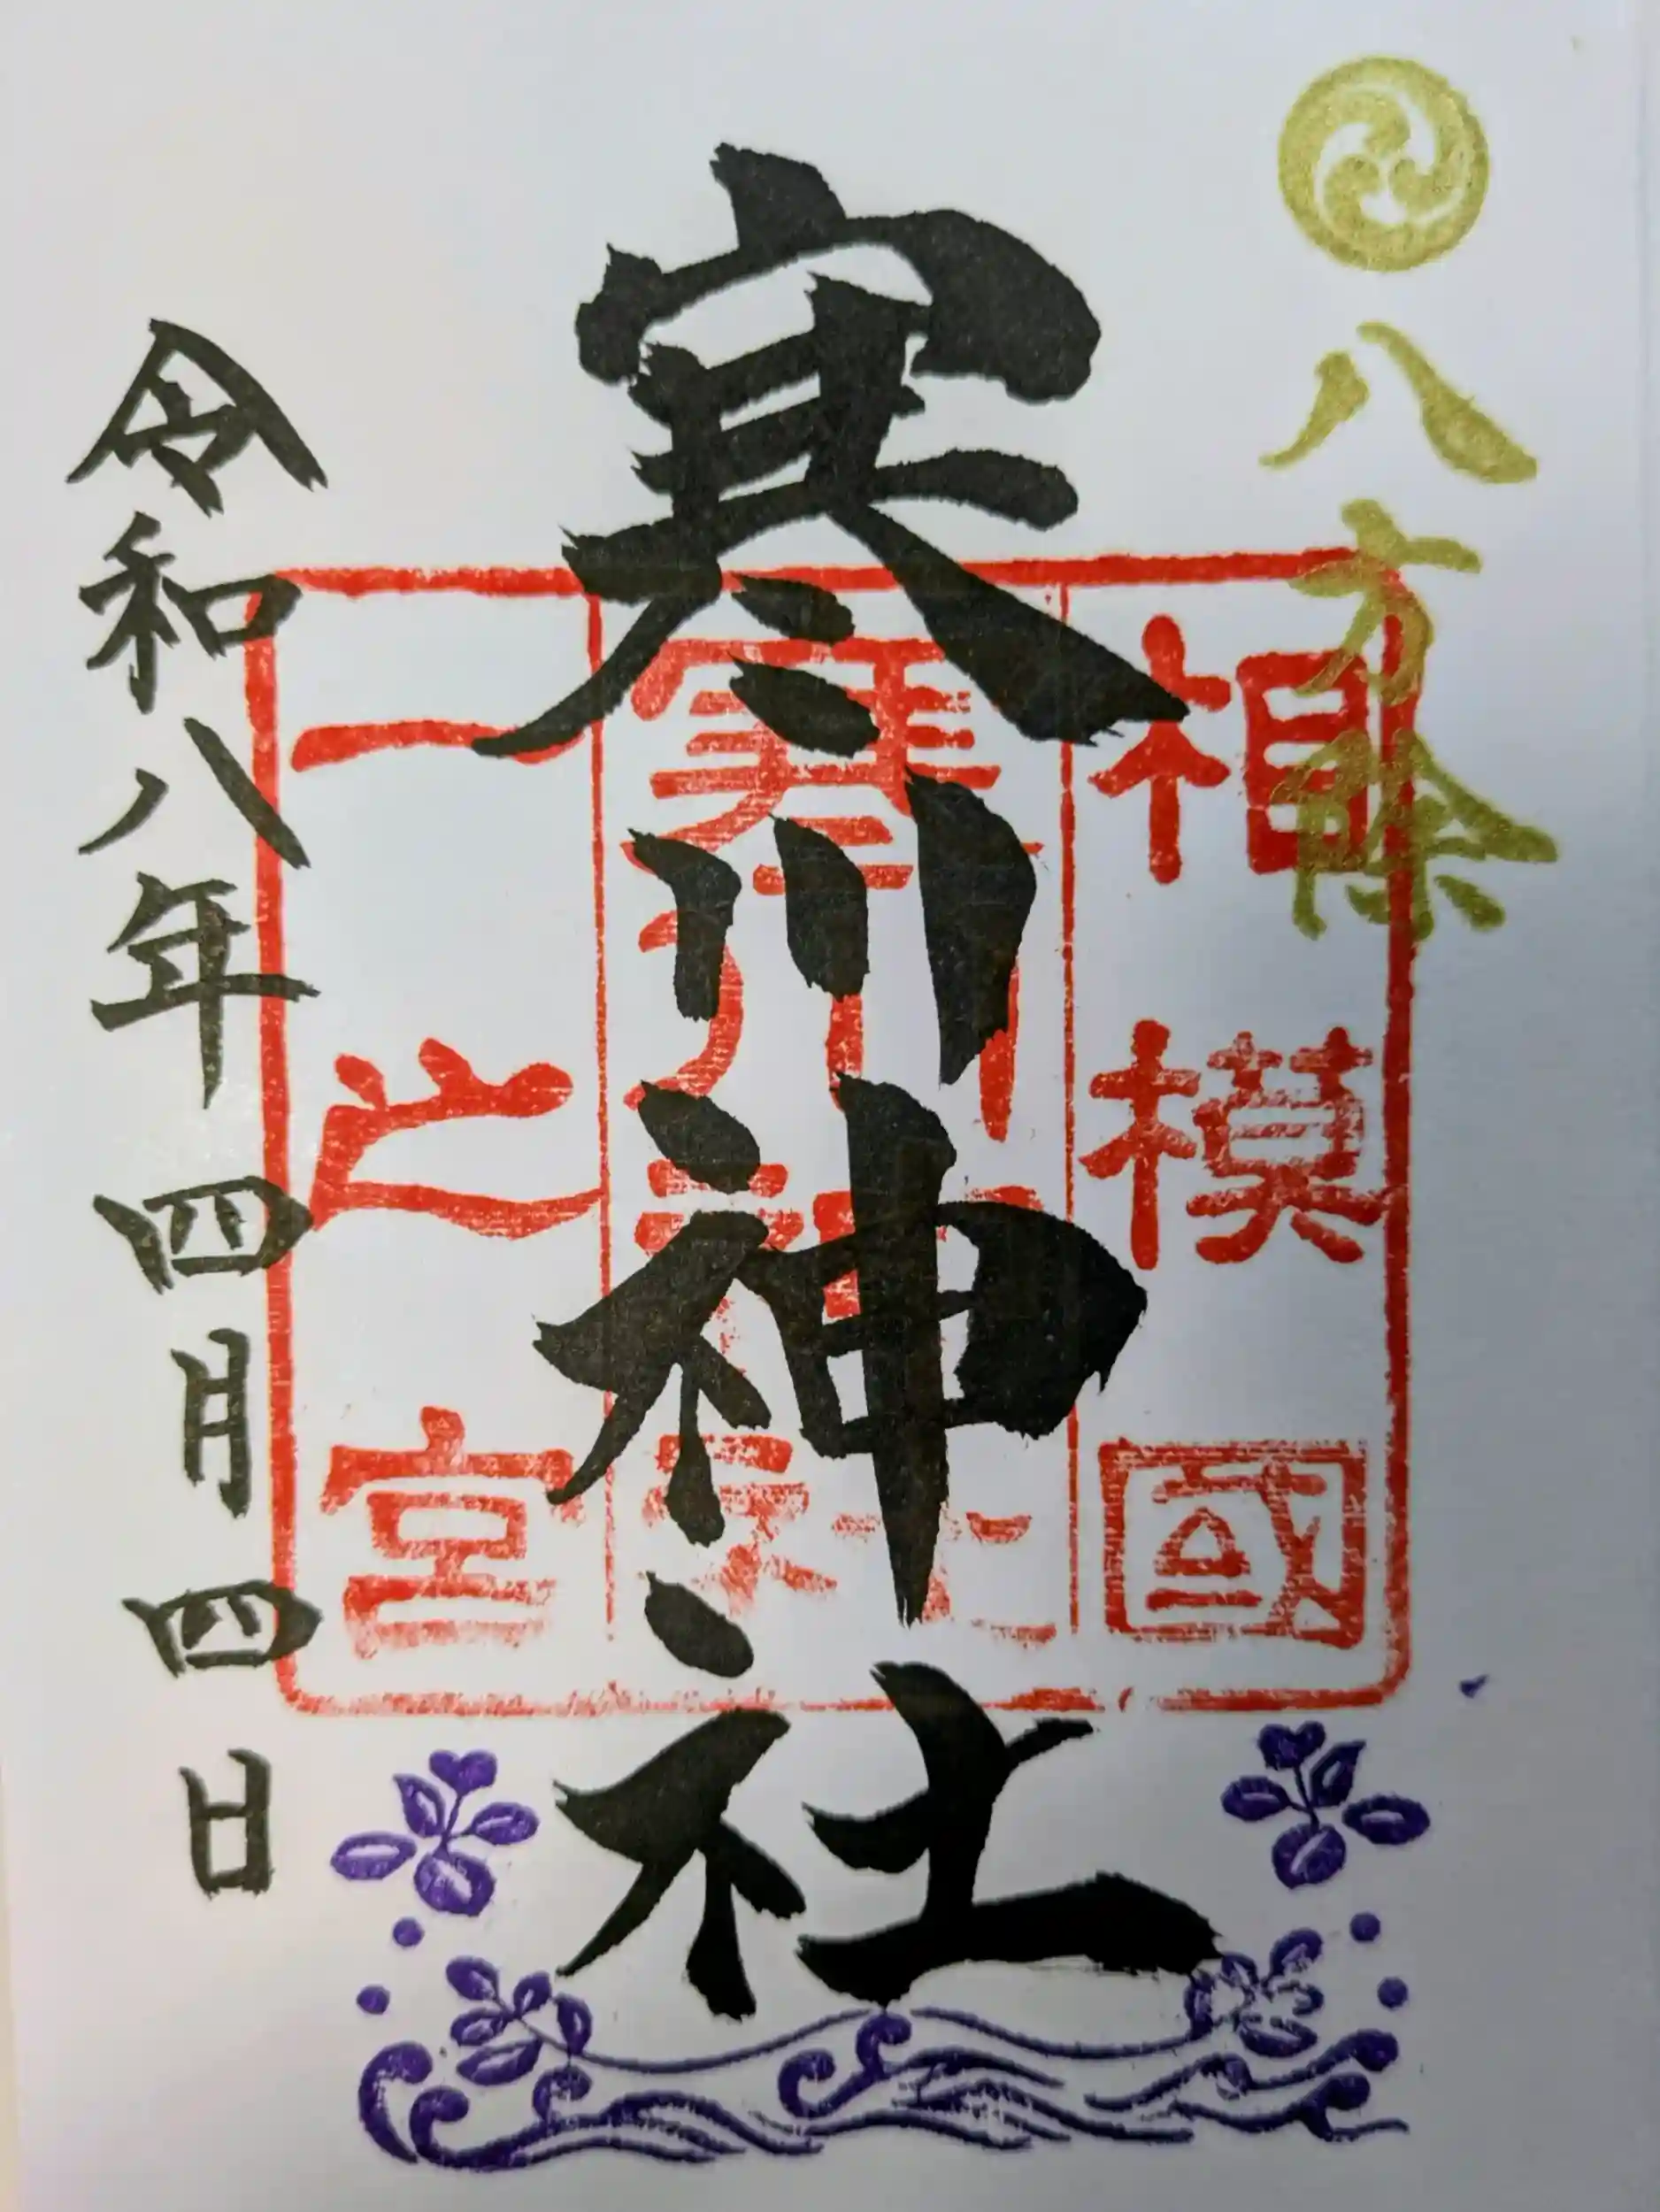 八方除
相模國
寒川神社
一之宮
寒川神社
令和八年四月四日